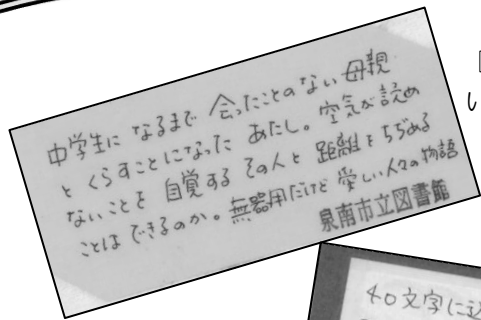 中学生に なるまで 会ったことのない 母親
と くらすことになった あたし。空気が読め
ないことを 自覚する その人と 距離を ちぢめる
ことは できるのか。無器用だけど 愛しい人々の物語
泉南市立図書館
い
40文字に